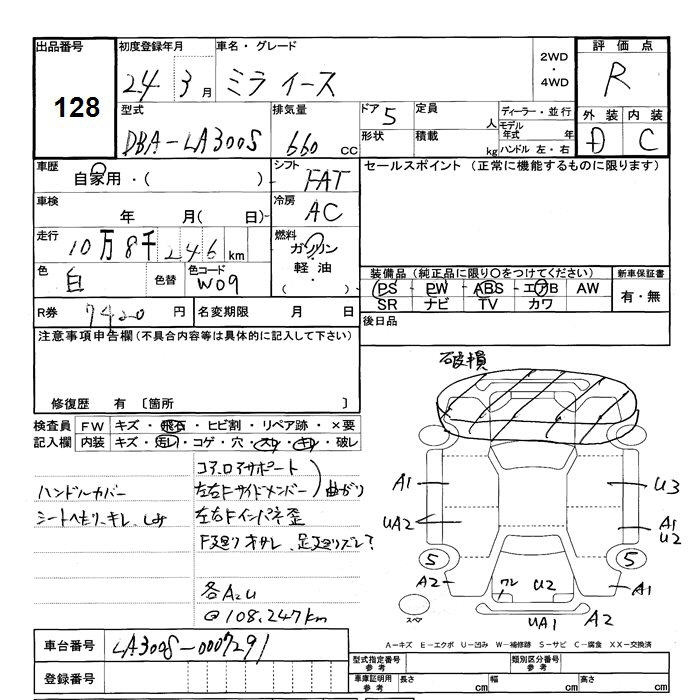 出品番号
128
初度登録年月
24 3月
車名・グレード
ミライース
2WD
・
4WD
評価点
R
外装 内装
D C
型式
DBA-LA300S
排気量
660 CC
ドア 5
形状
定員 人
積載 kg
ディーラー・並行
モデル年式 年
ハンドル 左・右
車歴
自家用・( )
シフト
FAT
セールスポイント (正常に機能するものに限ります)
車検
年 月( 日)
冷房
AC
走行
10万8千246km
燃料
ガソリン
・
軽油
・
( )
色
白
色替
色コード
W09
装備品 (純正品に限り○をつけてください)
PS ・ PW ・ ABS ・ エアB ・ AW
SR ナビ TV カワ
新車保証書
有・無
R券 7420 円
名変期限 月 日
後日品
注意事項申告欄 (不具合内容等は具体的に記入して下さい)
修復歴 有 〔箇所 〕
検査員
記入欄
FW キズ・飛石・ヒビ割・リペア跡・×要
内装 キズ・モレ・コゲ・穴・スレ・キレ・破レ
コア、ロアサポート
ハンドルカバー
左右Fサイドメンバー
曲がり
左右Fインパネ歪
各A2U
@108.247km
破損
A1
U3
UA2
A1
U2
5
5
A2
ワレ
U2
A1
スペア
UA1
A2
A-キズ E-エクボ U-凹み W-補修跡 S-サビ C-腐食 XX-交換済
車台番号
LA300S-0007291
登録番号
型式指定番号
参考
類別区分番号
参考
車庫証明用
参考
長さ cm
幅 cm
高さ cm